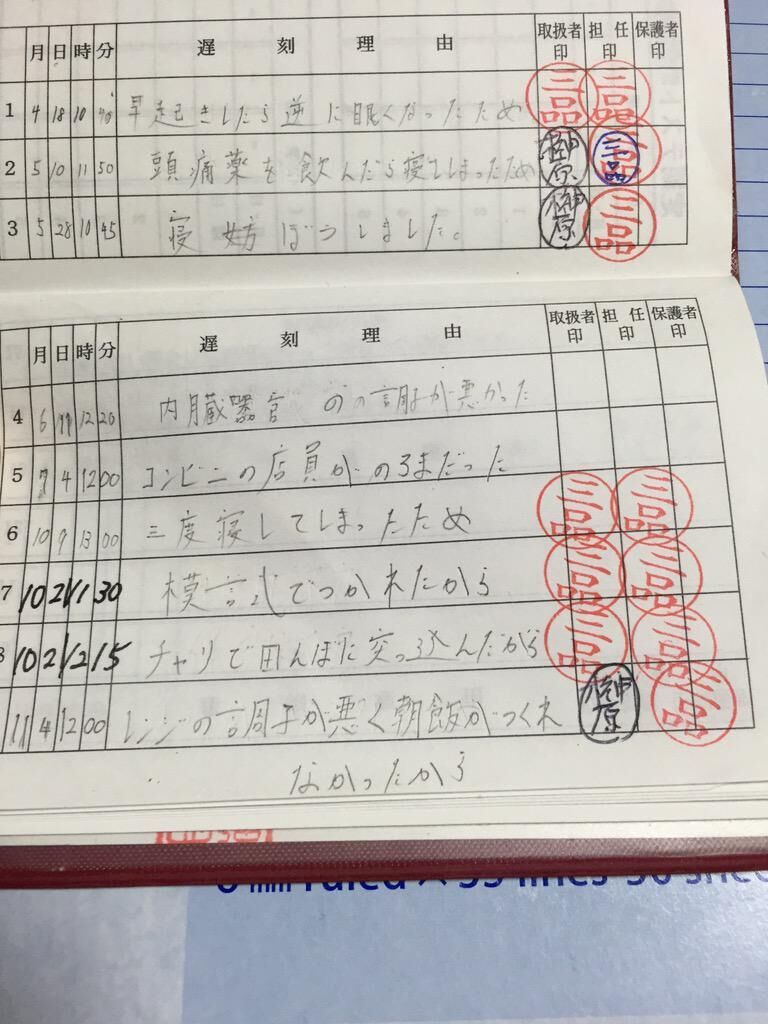 月 日 時 分 遅刻理由 取扱者印 担任印 保護者印
1 4 18 10 40 早起きしたら逆に眠くなったため 三品 三品
2 5 10 11 50 頭痛薬を飲んだら寝てしまったため 榊原 三品
3 5 28 10 45 寝坊ぼうしました。 榊原 三品
月 日 時 分 遅刻理由 取扱者印 担任印 保護者印
4 6 11 12 20 内臓器官の調子が悪かった
5 7 4 12 00 コンビニの店員がのろまだった
6 10 9 13 00 三度寝してしまったため 三品 三品
7 10 2 11 30 模試でつかれたから 三品 三品
8 10 2 12 15 チャリで田んぼに突っ込んだから 三品 三品
11 4 12 00 レンジの調子が悪く朝飯がつくれ 榊原 三品
なかったから